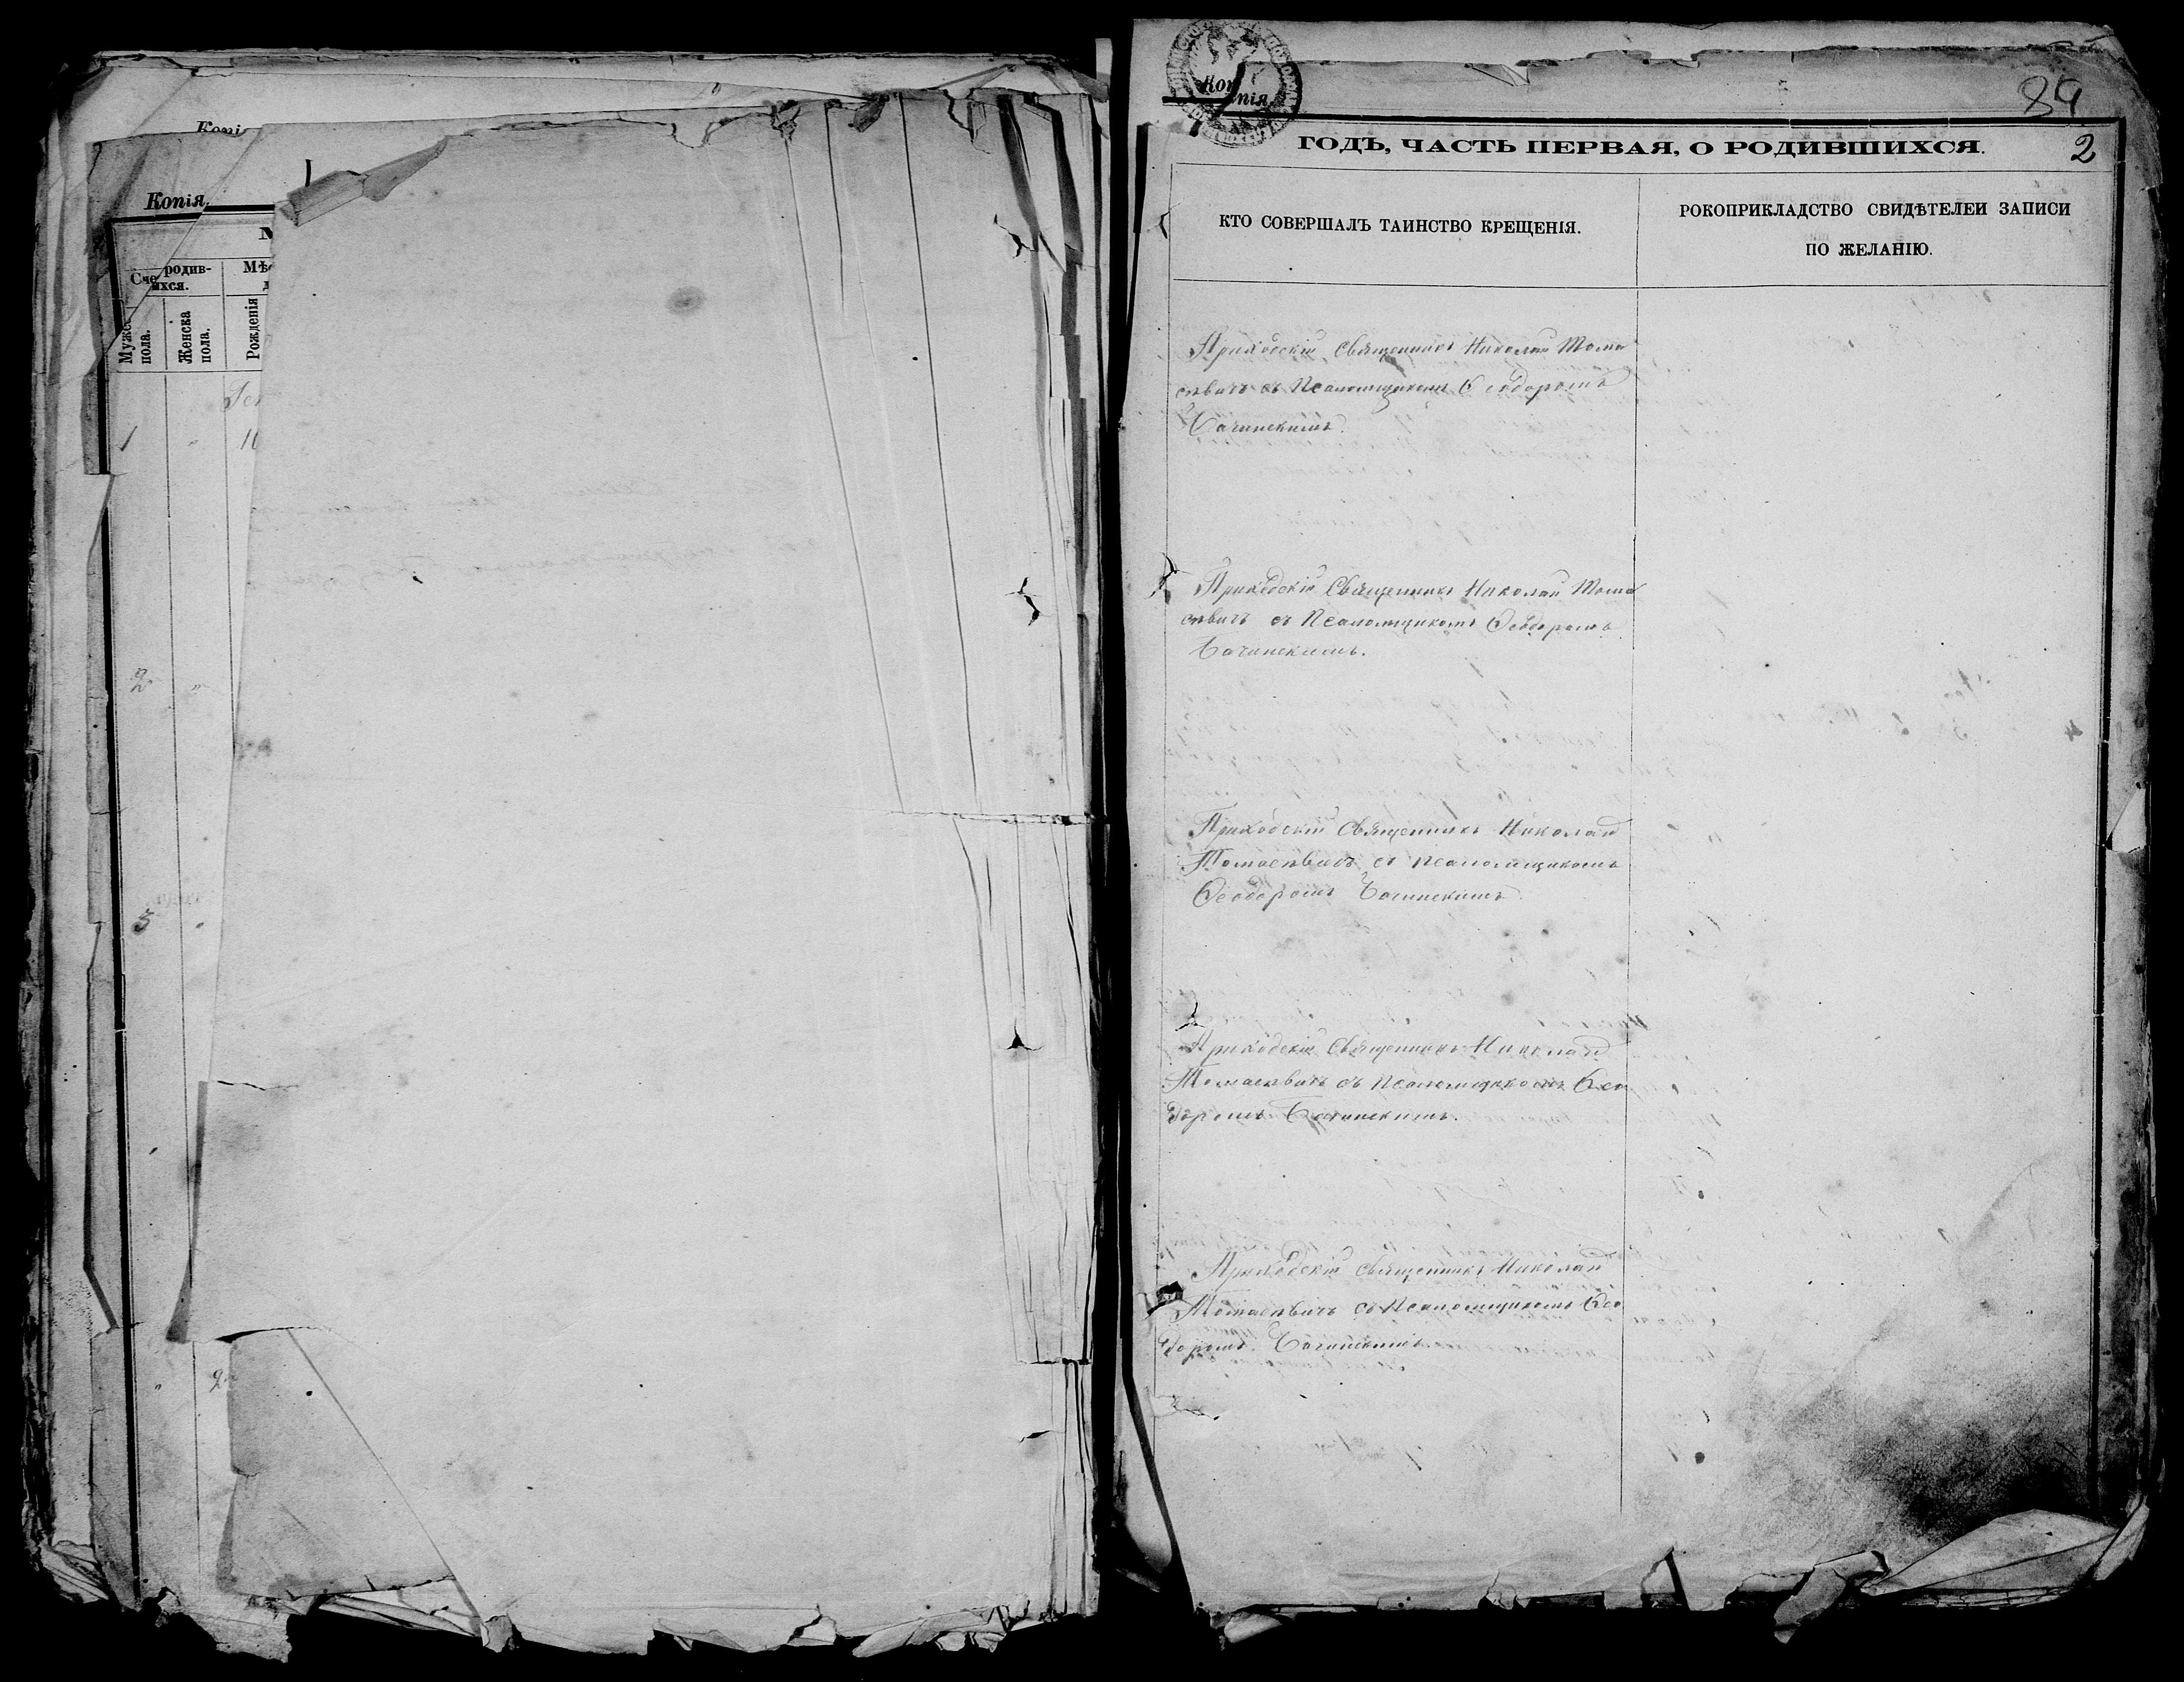 Копія
Копія.
Сче родив-
ихся.
Мужес
пола.
Женска
пола.
Рожденія
1 " 10
2 "
3 "
" 2
Копія
84
ГОДЪ, ЧАСТЬ ПЕРВАЯ, О РОДИВШИХСЯ.
2
КТО СОВЕРШАЛЪ ТАИНСТВО КРЕЩЕНІЯ.
РОКОПРИКЛАДСТВО СВИДѢТЕЛЕИ ЗАПИСИ
ПО ЖЕЛАНІЮ.
Приходскій Священникъ Николай Тома
съ Псаломщикомъ Ѳеодоромъ
Бачинскимъ.
Приходскій Священникъ Николай Тома
съ Псаломщикомъ Ѳеодоромъ
Бачинскимъ.
Приходскій Священникъ Николай
Томасевичъ съ псаломщикомъ
Ѳеодоромъ Бачинскимъ.
Приходскій Священникъ Николай
Томасевичъ съ Псаломщикомъ Ѳео
доромъ Бачинскимъ.
Приходскій Священникъ Николай
Томасевичъ съ Псаломщикомъ Ѳео
доромъ Бачинскимъ.